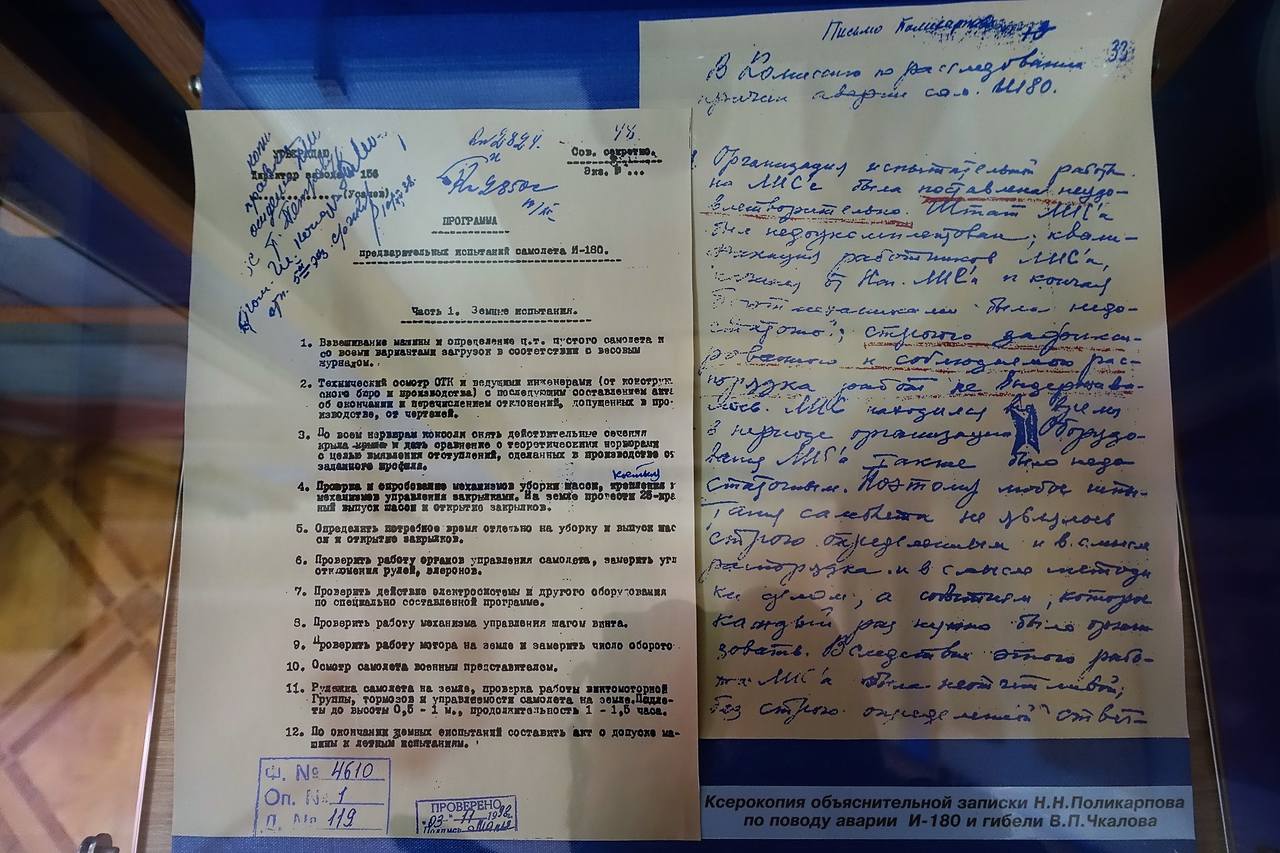 44.
Вх 2824.
УТВЕРЖДАЮ
Директор завода № 156
(Усачев)
Сов. секретно.
Экз. № ...
ПРОГРАММА
предварительных испытаний самолета И-180.
Часть 1. Земные испытания.
1. Взвешивание машины и определение ц.т. пустого самолета и
со всеми вариантами загрузок в соответствии с весовым
журналом.
2. Технический осмотр ОТК и ведущими инженерами (от конструк
ского бюро и производства) с последующим составлением акта
об окончании и перечислением отклонений, допущенных в про-
изводстве, от чертежей.
3. По всем нервюрам консоли снять действительные сечения
крыла и дать сравнение с теоретическими нервюрами
с целью выявления отступлений, сделанных в производстве от
заданного профиля.
4. Проверка и опробование механизмов уборки шасси, крепления и
механизмов управления закрылками. На земле провести 25-кра
ный выпуск шасси и открытие закрылков.
5. Определить потребное время отдельно на уборку и выпуск шас
си и открытие закрылков.
6. Проверить работу органов управления самолета, замерить угл
отклонения рулей, элеронов.
7. Проверить действие електросистемы и другого оборудования
по специально составленной программе.
8. Проверить работу механизма управления шагом винта.
9. Проверить работу мотора на земле и замерить число оборото
10. Осмотр самолета военным представителем.
11. Рулежка самолета на земле, проверка работы винтомоторной
Группы, тормозов и управляемости самолета на земле. Подле-
ты до высоты 0,5 - 1 м., продолжительность 1 - 1,5 часа.
12. По окончании земных испытаний составить акт о допуске ма-
шины к летным испытаниям.
Ф. № 4610
Оп. № 1
Д. № 119
ПРОВЕРЕНО
"03" 11 1992г.
Подпись
Письмо Поликарпова
33
В Комиссию по расследованию
причин аварии сам. И180.
Организация испытательной работы
на ЛИСе была поставлена неудо-
влетворительно. Штат ЛИС'а
был недоукомплектован; квали-
фикация работников ЛИС'а,
начиная от Нач. ЛИС'а и кончая
механиками была недо-
статочно; строго зафикси-
рованного и соблюдаемого рас-
порядка работ не выдержива-
лось. ЛИС находился во время
в периоде организации. Оборудо-
вание ЛИС'а также было недо
статочным. Поэтому любое испы-
тание самолета не являлось
строго определенным и в смысле
распорядка и в смысле методи
ки делом, а событием, которое
каждый раз нужно было органи
зовать. Вследствие этого рабо-
та ЛИС'а была неотчетливой,
без строго определенной ответ-
Ксерокопия объяснительной записки Н.Н.Поликарпова
по поводу аварии И-180 и гибели В.П.Чкалова